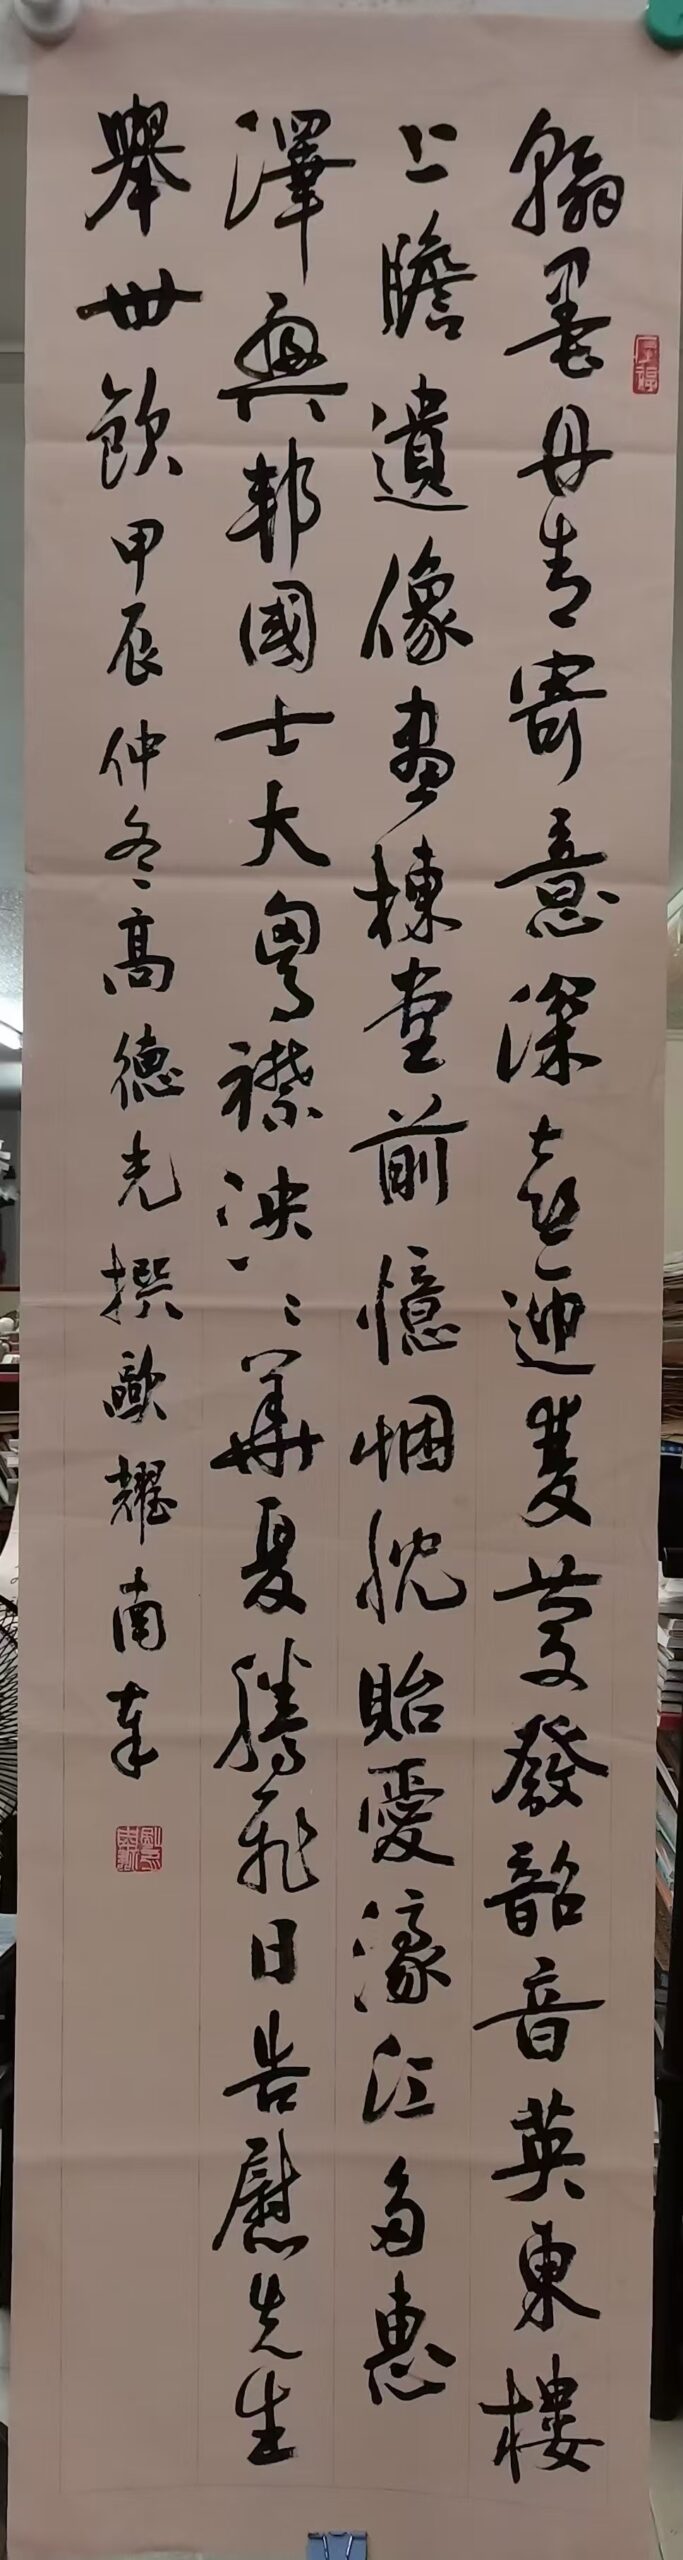 翰墨丹青寄意深喜迎雙慶發韶音英東樓
上瞻遺像畫棟堂前憶悃忱貽愛濠江多惠
澤興邦國士大粵襟泱〻華夏騰飛日告慰先生
舉世欽甲辰仲冬高德光撰歐耀南奉